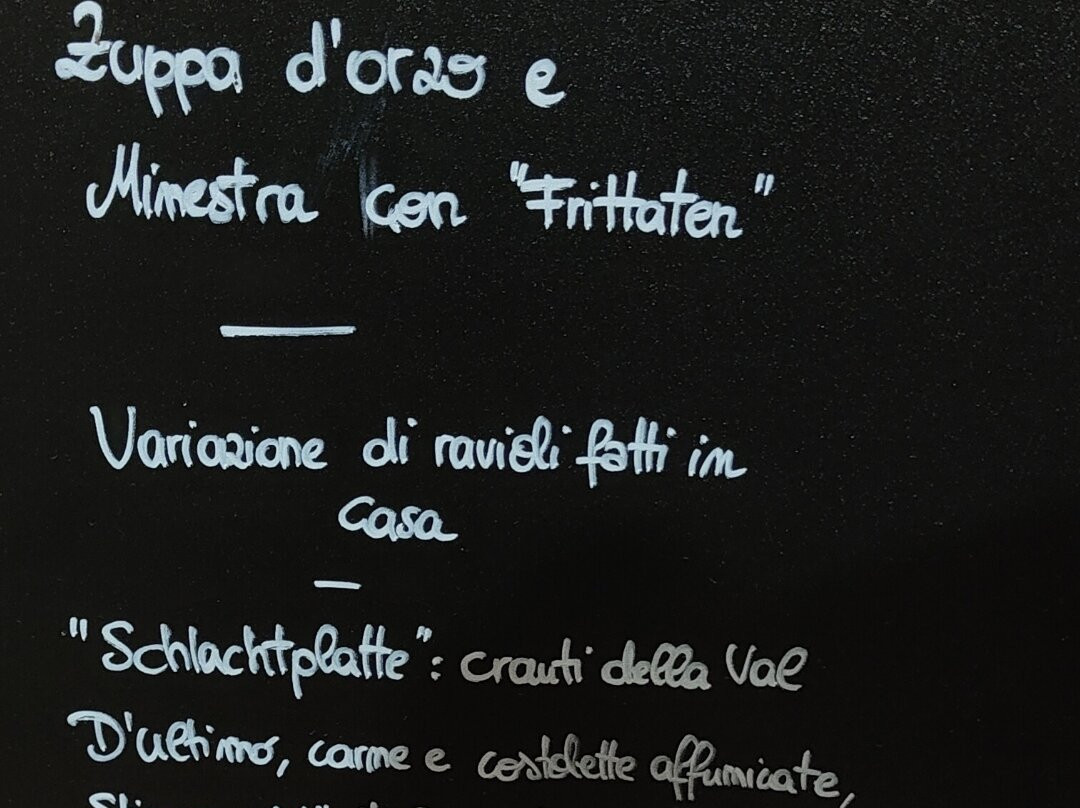 Zuppa d'orzo e
Minestra con "Frittaten"
Variazione di ravioli fatti in
casa
"Schlachtplatte": crauti della Val
D'ultimo, carne e costolette affumicate,